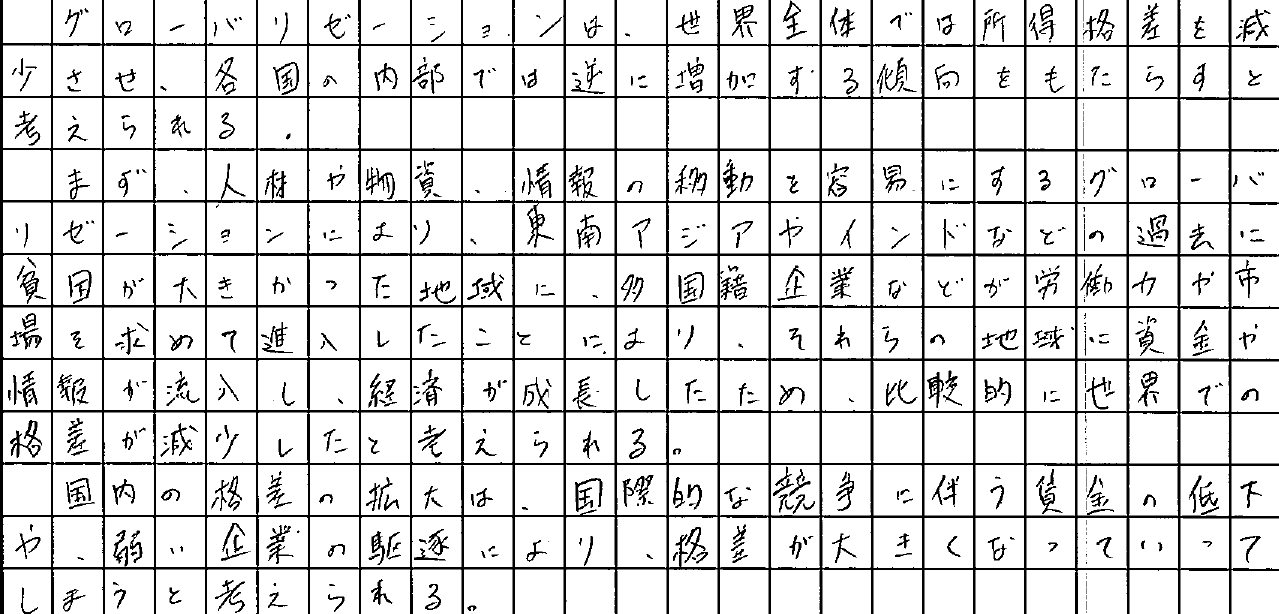 グローバリゼーションは、世界全体では所得格差を減
少させ、各国の内部では逆に増加する傾向をもたらすと
考えられる。
まず、人材や物資、情報の移動を容易にするグローバ
リゼーションにより、東南アジアやインドなどの過去に
貧困が大きかった地域に、多国籍企業などが労働力や市
場を求めて進入したことにより、それらの地域に資金や
情報が流入し、経済が成長したため、比較的に世界での
格差が減少したと考えられる。
国内の格差の拡大は、国際的な競争に伴う賃金の低下
や、弱い企業の駆逐により、格差が大きくなっていって
しまうと考えられる。